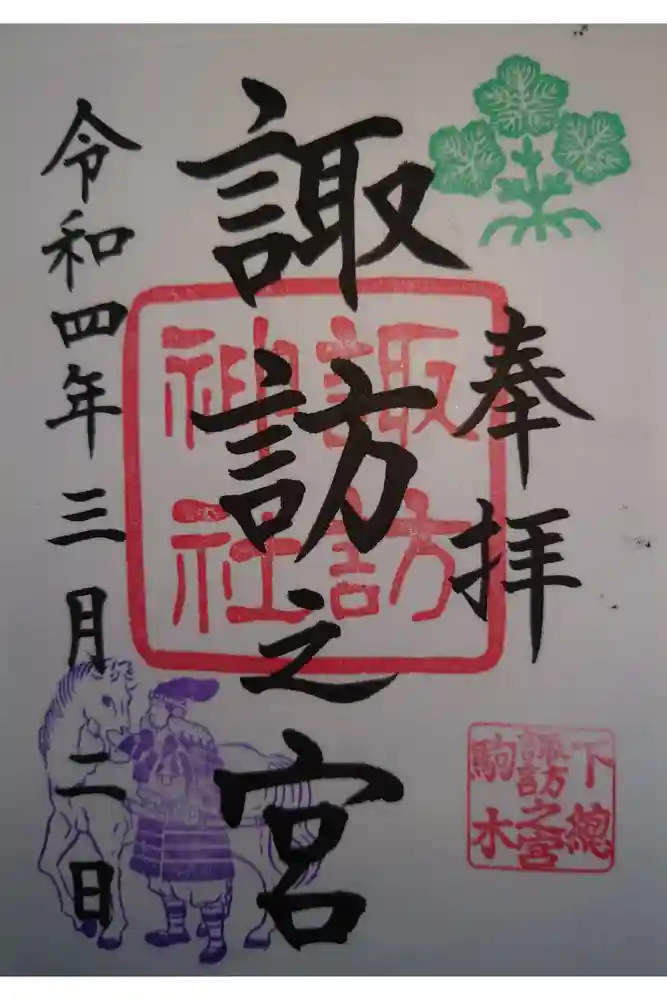 奉拝
諏訪之宮
令和四年三月二日
諏訪
神社
下總
諏訪
之宮
駒木